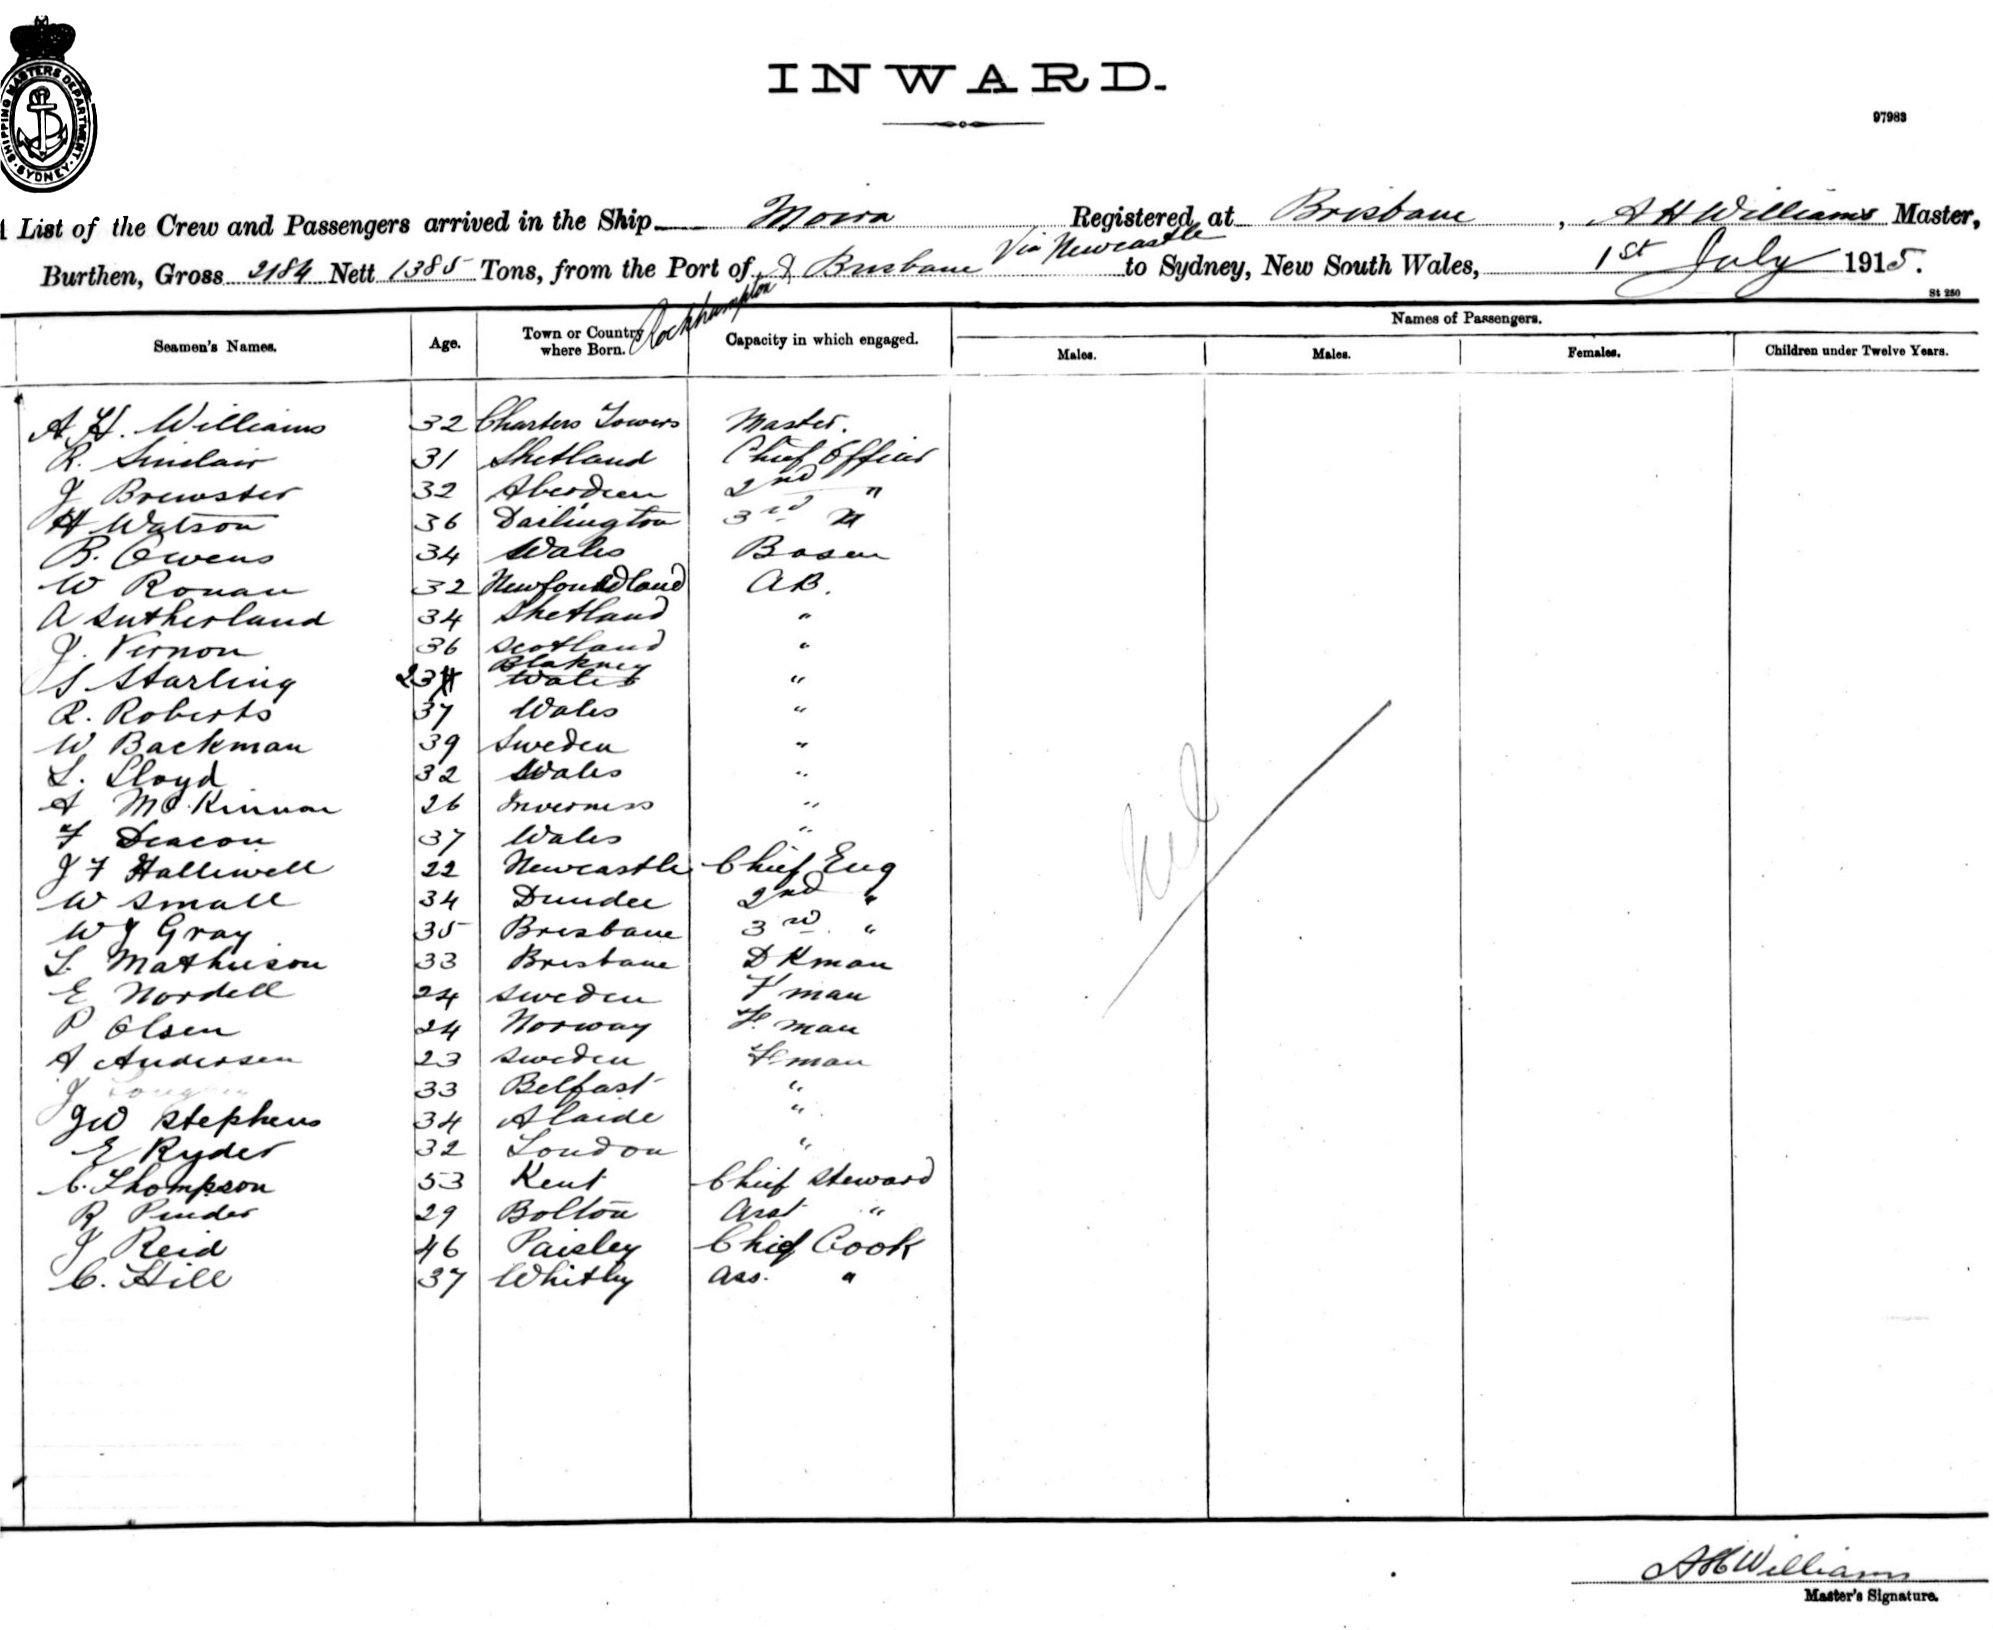 SHIPPING MASTERS DEPARTMENT · SYDNEY ·
INWARD.
97983
A List of the Crew and Passengers arrived in the Ship Moira Registered at Brisbane, A H Williams Master,
Burthen, Gross 2184 Nett 1385 Tons, from the Port of Rockhampton & Brisbane Via Newcastle to Sydney, New South Wales, 1st July 1915.
St 250
Seamen's Names. Age. Town or Country where Born. Capacity in which engaged. Names of Passengers.
Males. Males. Females. Children under Twelve Years.
A. H. Williams 32 Charters Towers Master.
R. Sinclair 31 Shetland Chief Officer
J Brewster 32 Aberdeen 2nd "
H Watson 36 Darlington 3rd "
R. Owens 34 Wales Bosen
W Ronan 32 Newfoundland AB.
A Sutherland 34 Shetland "
J. Vernon 36 Scotland "
S Starling 23 Blakney Wales "
R. Roberts 37 Wales "
W Backman 39 Sweden "
L. Lloyd 32 Wales "
A McKinnon 26 Inverness "
F Deacon 37 Wales "
J F Halliwell 22 Newcastle Chief Eng
W Small 34 Dundee 2nd "
W J Gray 35 Brisbane 3rd "
L. Mathieson 33 Brisbane D Kman
E Nordell 24 Sweden F man
P Olsen 24 Norway F. man
A Andersen 23 Sweden F man
J 33 Belfast "
J W Stephens 34 Alaide "
E Ryder 32 London "
C. Thompson 53 Kent Chief Steward
R Pinder 29 Bolton Asst "
J Reid 46 Paisley Chief Cook
C. Hill 37 Whitby Ass. "
Nil
A H Williams
Master's Signature.